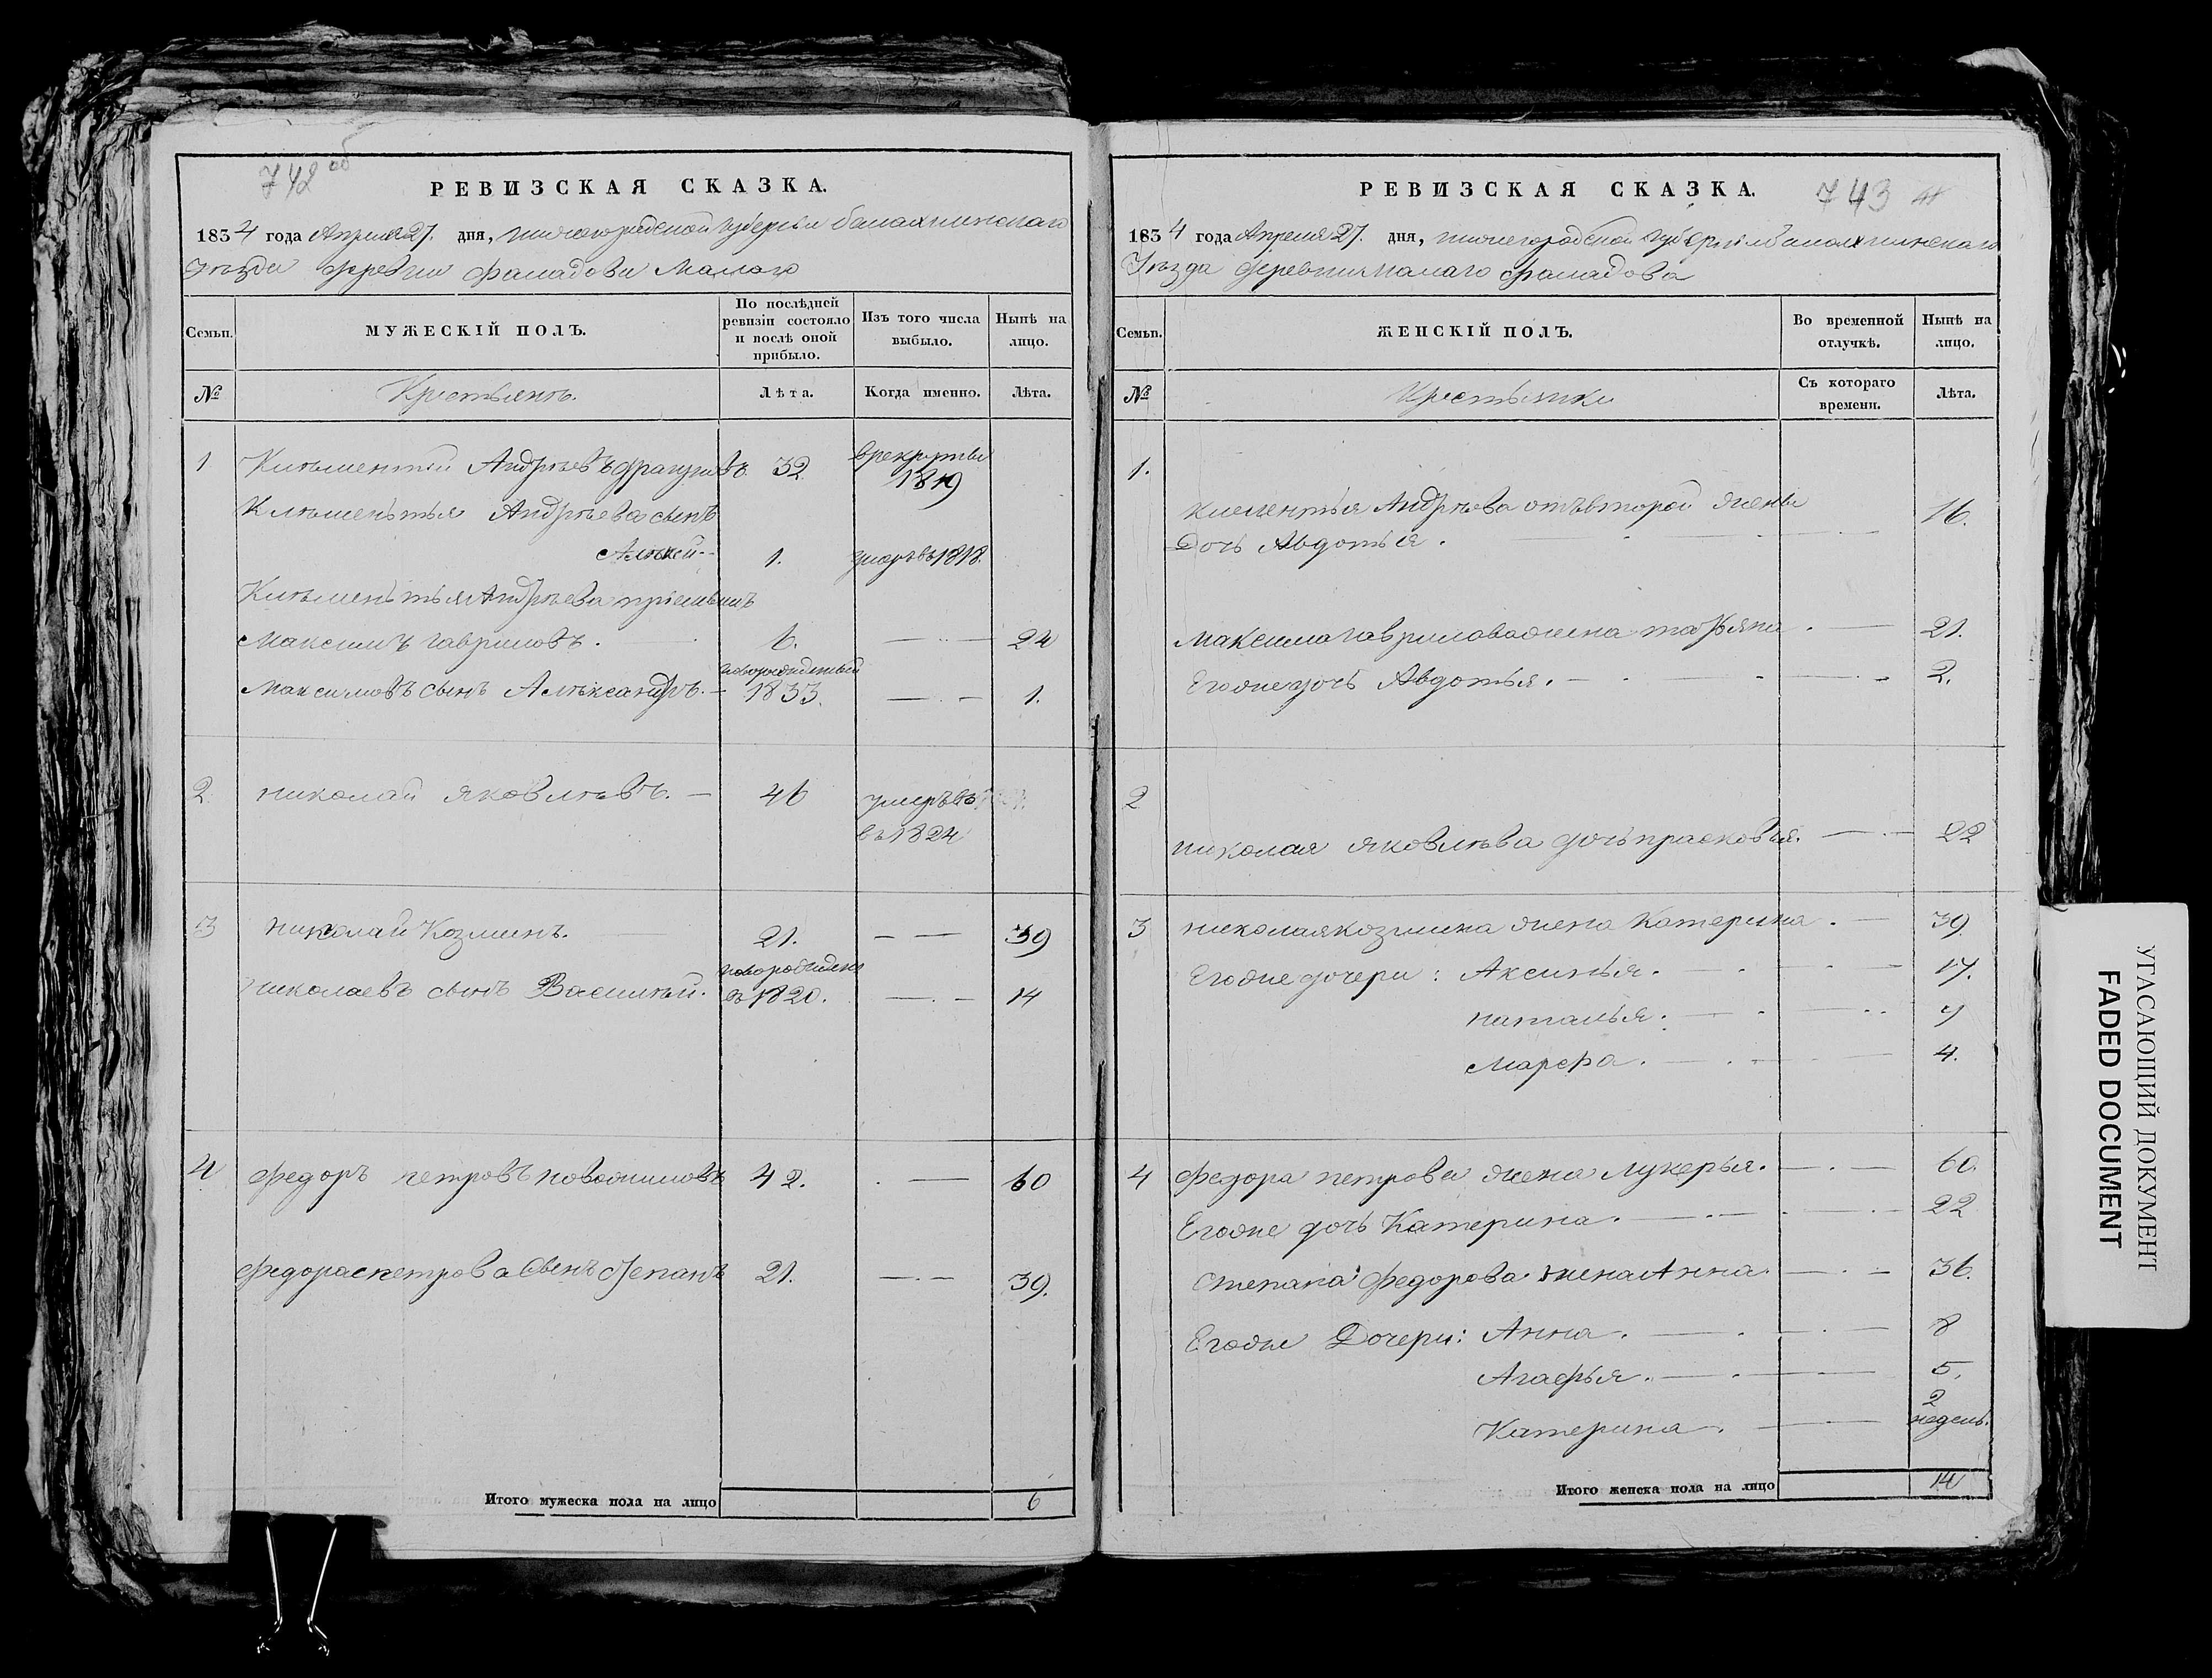 742 об
РЕВИЗСКАЯ СКАЗКА.
1834 года Апреля 27. дня, нижегородской губернии балахнинскаго
Уѣзда деревни фаладова Малаго
Семьи. МУЖЕСКІЙ ПОЛЪ. По послѣдней ревизіи состояло и послѣ оной прибыло. Изъ того числа выбыло. Нынѣ на лицо.
№ Крестьянъ. Лѣта. Когда именно. Лѣта.
1 Клѣментій Андрѣевъ 32 врекруты 1819
Клѣменьтья Андрѣева сынъ
Алѣксѣй 1. умеръ въ 1818.
Клѣменьтья Андрѣева пріемышъ
Максимъ гавриловъ. 6. 24
Максимовъ сынъ Алѣксандръ. новорожденный 1833. 1.
2. николай яковлѣвъ. 46 умеръ въ
въ 1824
3 николай Козминъ. 21. 39
николаевъ сынъ Василѣй. новорожденъ въ 1820. 14
4 федоръ петровъ новожиловъ 42. 60
федора петрова Сынъ степанъ 21. 39.
Итого мужеска пола на лицо 6
РЕВИЗСКАЯ СКАЗКА. 743
1834 года Апреля 27. дня, нижегородской губерніи балахнинскаго
Уѣзда деревни малаго фаладова
Семьи. ЖЕНСКІЙ ПОЛЪ. Во временной отлучкѣ. Нынѣ на лицо.
№ Крестьянки Съ котораго времени. Лѣта.
1.
клементья Андрѣева отъ второй жены
Дочь Авдотья. 16.
максима гаврилова жена татьяна. 21.
Егоже дочь Авдотья. 2.
2
николая яковлѣва дочь прасковья. 22
3 николая козмина жена Катерина. 39.
Егоже дочери: Аксинья. 17.
наталья. 7
Марфа. 4.
4 Федора петрова жена лукерья. 60.
Егоже дочь Катерина. 22
степана федорова жена Анна 36.
Егоже Дочери: Анна. 8
Агафья. 5.
Катерина. 2 недель.
Итого женска пола на лицо 14
УГАСАЮЩИЙ ДОКУМЕНТ
FADED DOCUMENT